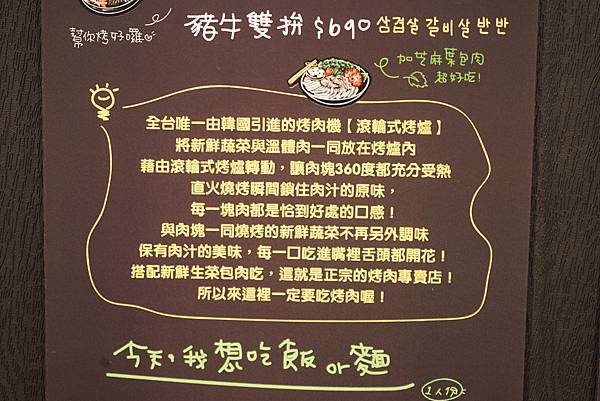 豬牛雙拚 $690 삼겹살 갈비살 반반
幫你烤好囉
加芝麻葉包肉
超好吃!
全台唯一由韓國引進的烤肉機【滾輪式烤爐】
將新鮮蔬菜與溫體肉一同放在烤爐內
藉由滾輪式烤爐轉動，讓肉塊360度都充分受熱
直火燒烤瞬間鎖住肉汁的原味，
每一塊肉都是恰到好處的口感！
與肉塊一同燒烤的新鮮蔬菜不再另外調味
保有肉汁的美味，每一口吃進嘴裡舌頭都開花！
搭配新鮮生菜包肉吃，這就是正宗的烤肉專賣店！
所以來這裡一定要吃烤肉喔！
今天，我想吃飯or麵
1人份